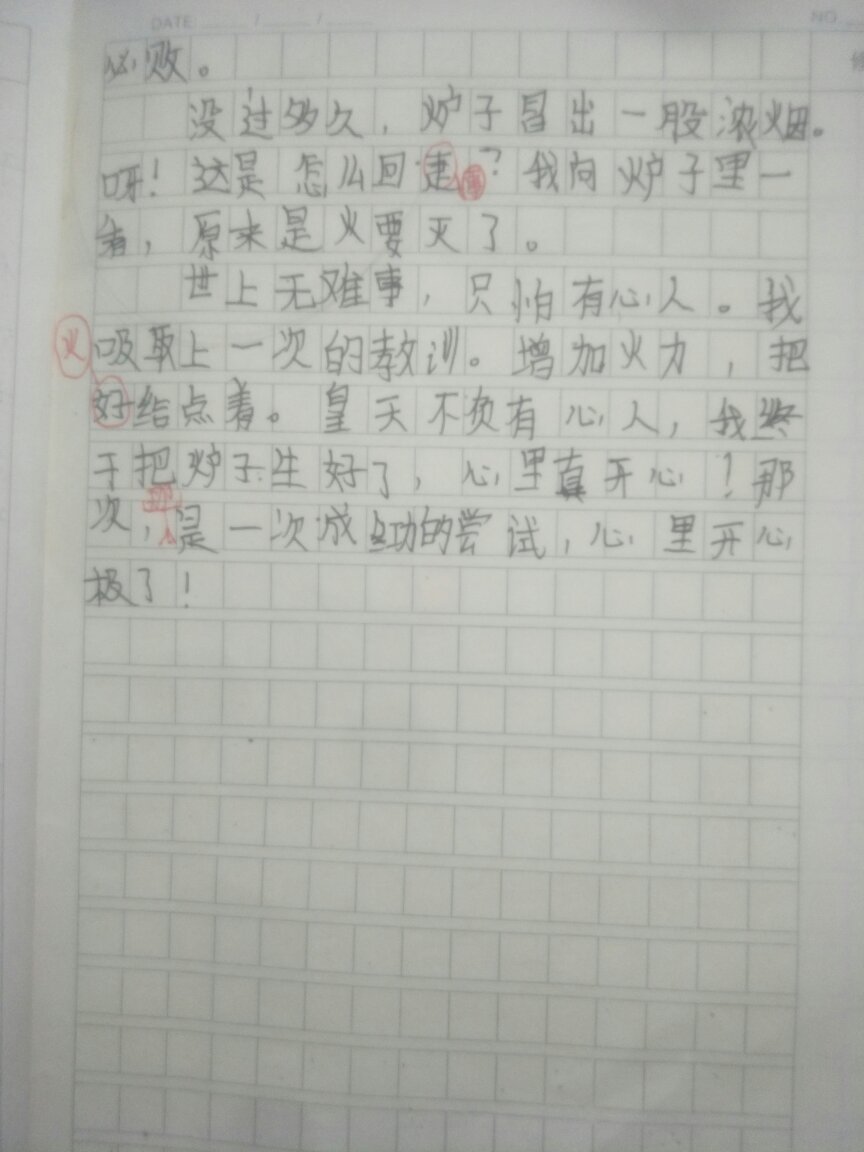 DATE / /
NO
必败。
没过多久，炉子冒出一股浓烟。
呀！这是怎么回事？我向炉子里一
看，原来是火要灭了。
世上无难事，只怕有心人。我
火
吸取上一次的教训。增加火力，把
好给点着。皇天不负有心人，我终
于把炉子生好了，心里真开心！那
次，是一次成功的尝试，心里开心
极了！